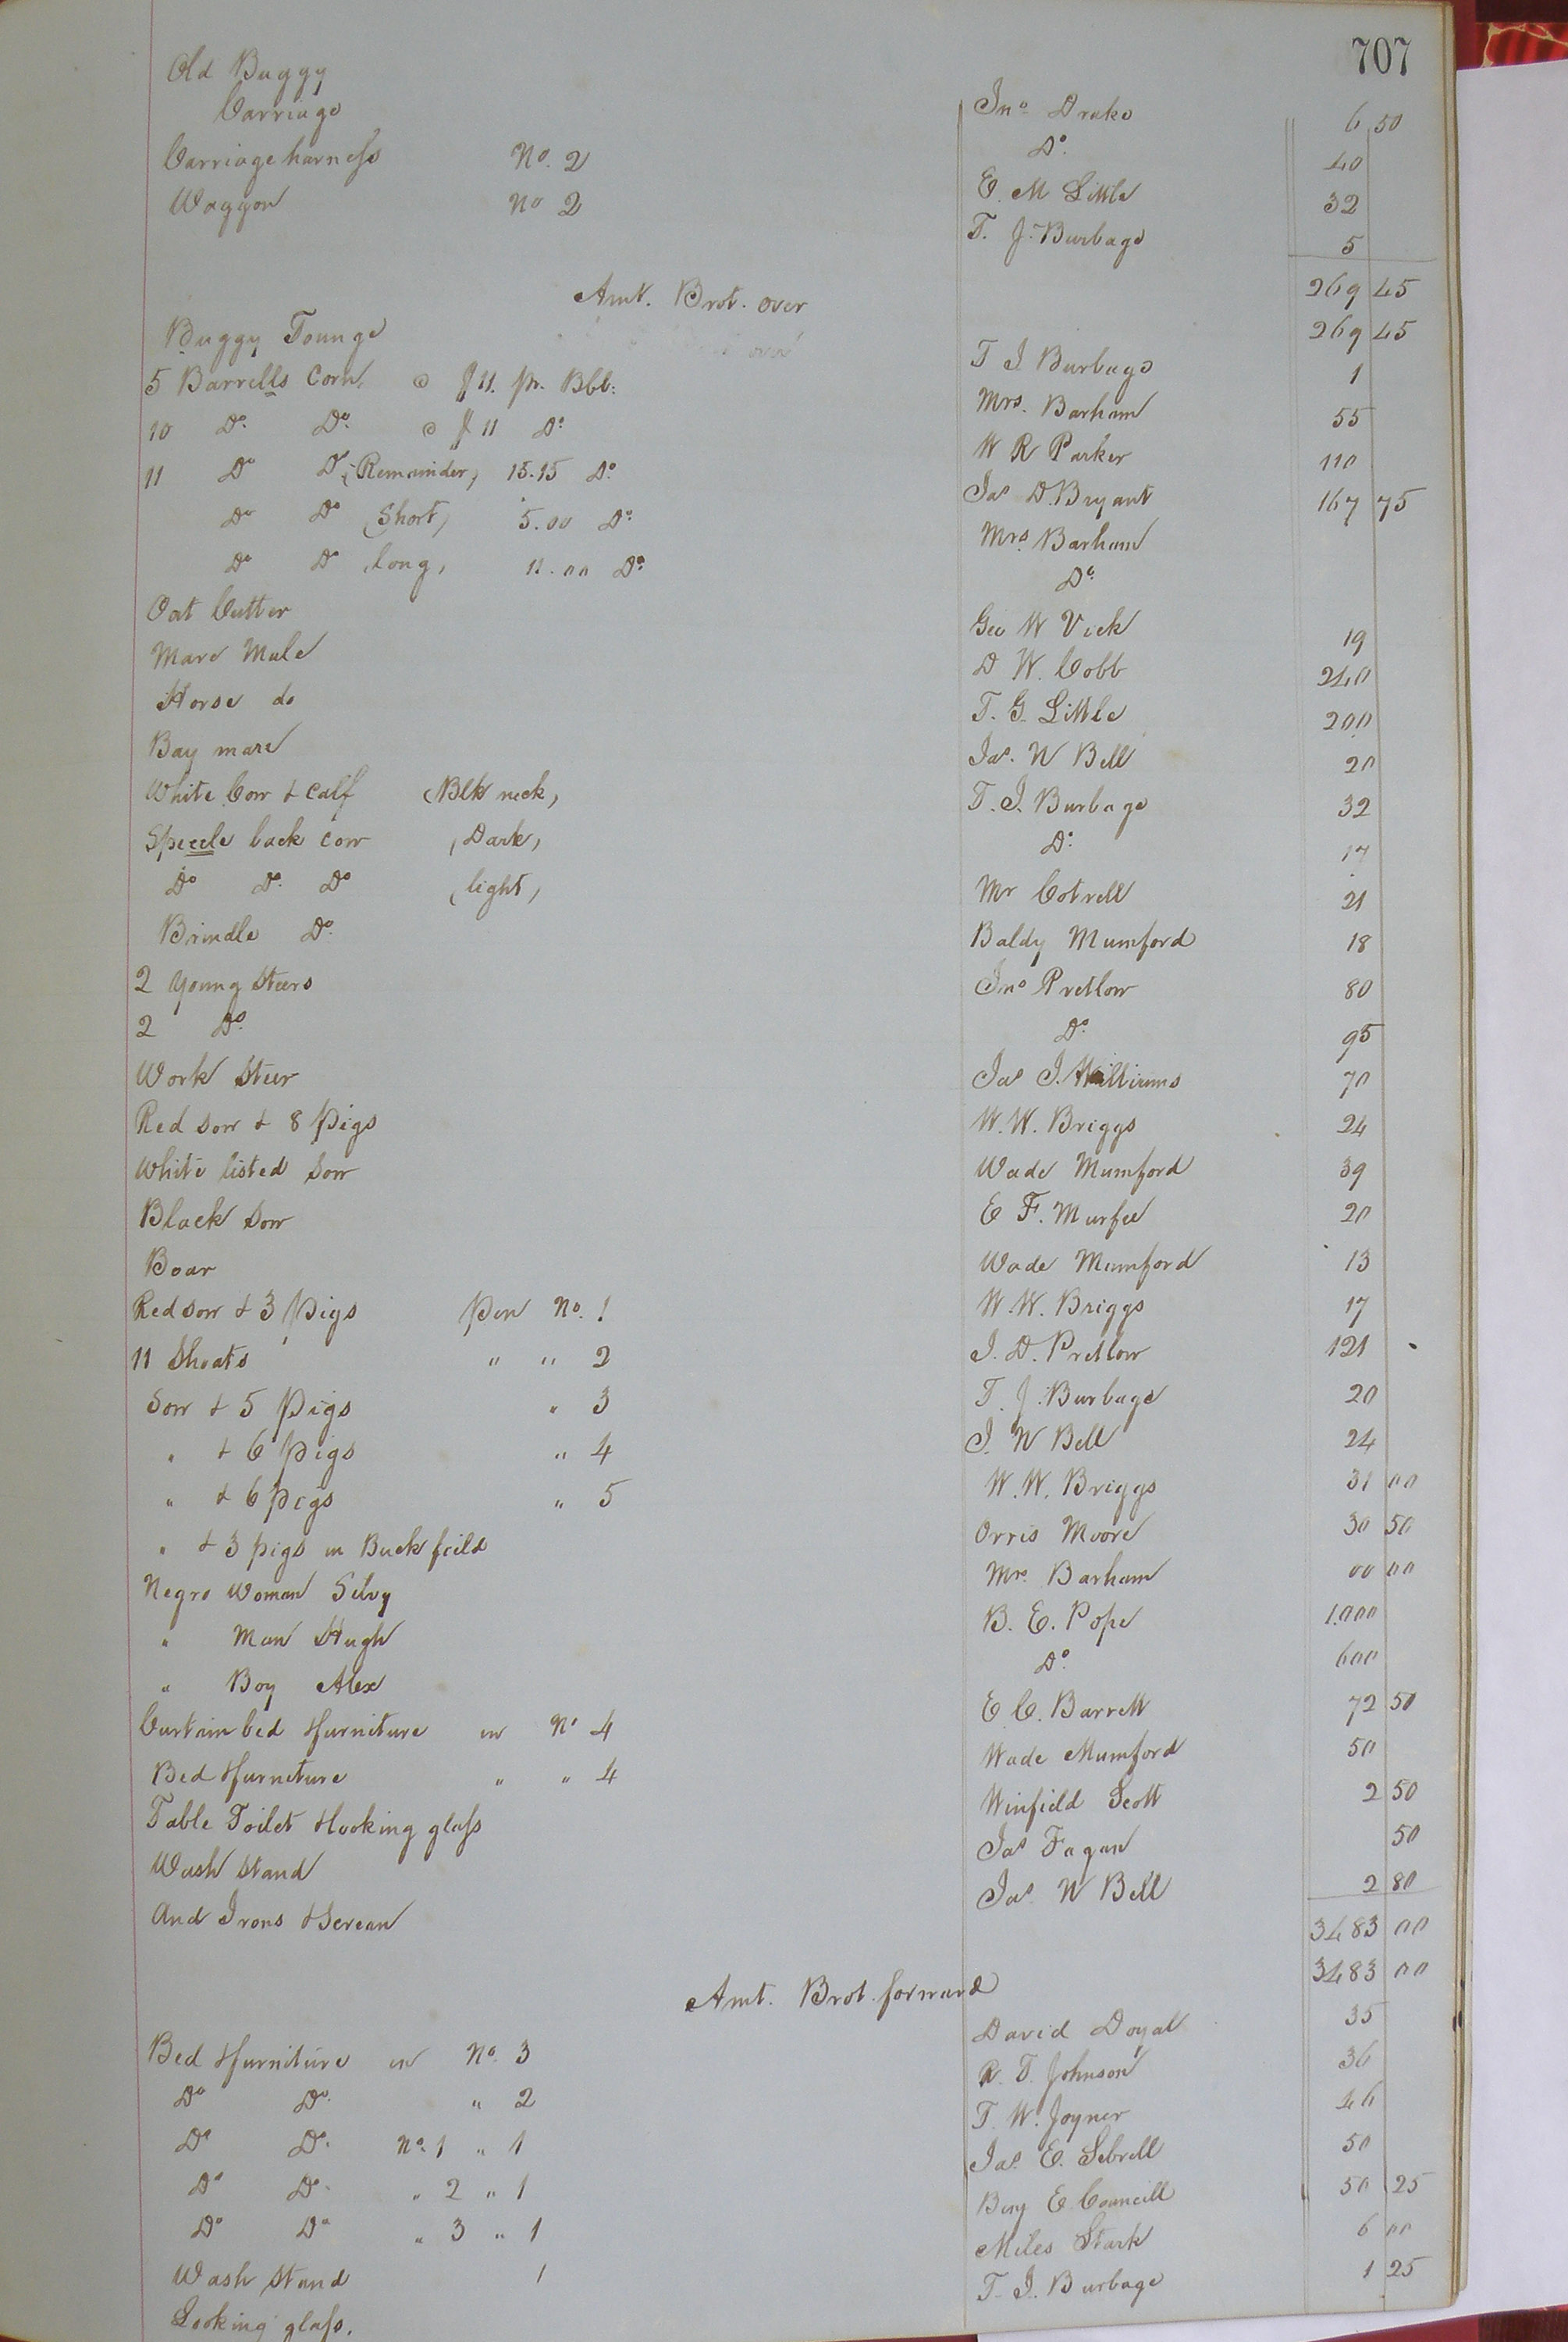 707
Old Buggy Jno. Drake 6 50
Carriage Do. 40
Carriage harness No. 2 E. M Little 32
Waggon No 2 T. J. Burbage 5
269 45
Amt. Brot. over 269 45
Buggy Tounge T J Burbage 1
5 Barrells Corn, @ $11. pr. Bbl. Mrs. Barham 55
10 Do. Do. @ $11 Do. W R Parker 110
11 Do Do (Remainder) 15.15 Do. Jas D. Bryant 167 75
Do Do (Short) 5.00 Do. Mrs. Barham
Do Do (long) 11.00 Do. Do.
Oat Cutter Geo W Vick 19
Mare Mule D W. Cobb 240
Horse do T. G. Little 200
Bay mare Jas. W Bell 20
White Cow & Calf (Blk neck) T. J. Burbage 32
Speccle back Cow (Dark) Do. 17
Do Do. Do (light) Mr Cotrell 21
Brindle Do. Baldy Mumford 18
2 Young Steers Jno Pretlow 80
2 Do. Do. 95
Work Steer Jas J. Williams 70
Red Sow & 8 Pigs W. W. Briggs 24
White listed Sow Wade Mumford 39
Black Sow E F. Murfee 20
Boar Wade Mumford 13
Red Sow & 3 Pigs Pen No. 1 W. W. Briggs 17
11 Shoats " " 2 J. D. Pretlow 121
Sow & 5 Pigs " 3 T. J. Burbage 20
" & 6 Pigs " 4 J. W Bell 24
" & 6 Pigs " 5 W. W. Briggs 31 00
" & 3 pigs in Buck feild Orris Moore 30 50
Negro Woman Silvy Mrs. Barham 00 00
" Man Hugh B. E. Pope 1.000
" Boy Alex Do. 600
Curtain bed & furniture in No 4 E C. Barrett 72 50
Bed & furniture " " 4 Wade Mumford 50
Table Toilet & looking glass Winfield Scott 2 50
Wash Stand Jas Fagan 50
And Irons & Screan Jas. W Bell 2 80
3483 00
Amt. Brot. forward 3483 00
Bed & furniture in No. 3 David Doyal 35
Do Do. " 2 R. T. Johnson 36
Do Do. No. 1 " 1 T. W. Joyner 46
Do Do. " 2 " 1 Jas. E. Sebrell 50
Do Do " 3 " 1 Benj E Councill 50 25
Wash Stand 1 Miles Stark 6 00
Looking glass. T. J. Burbage 1 25